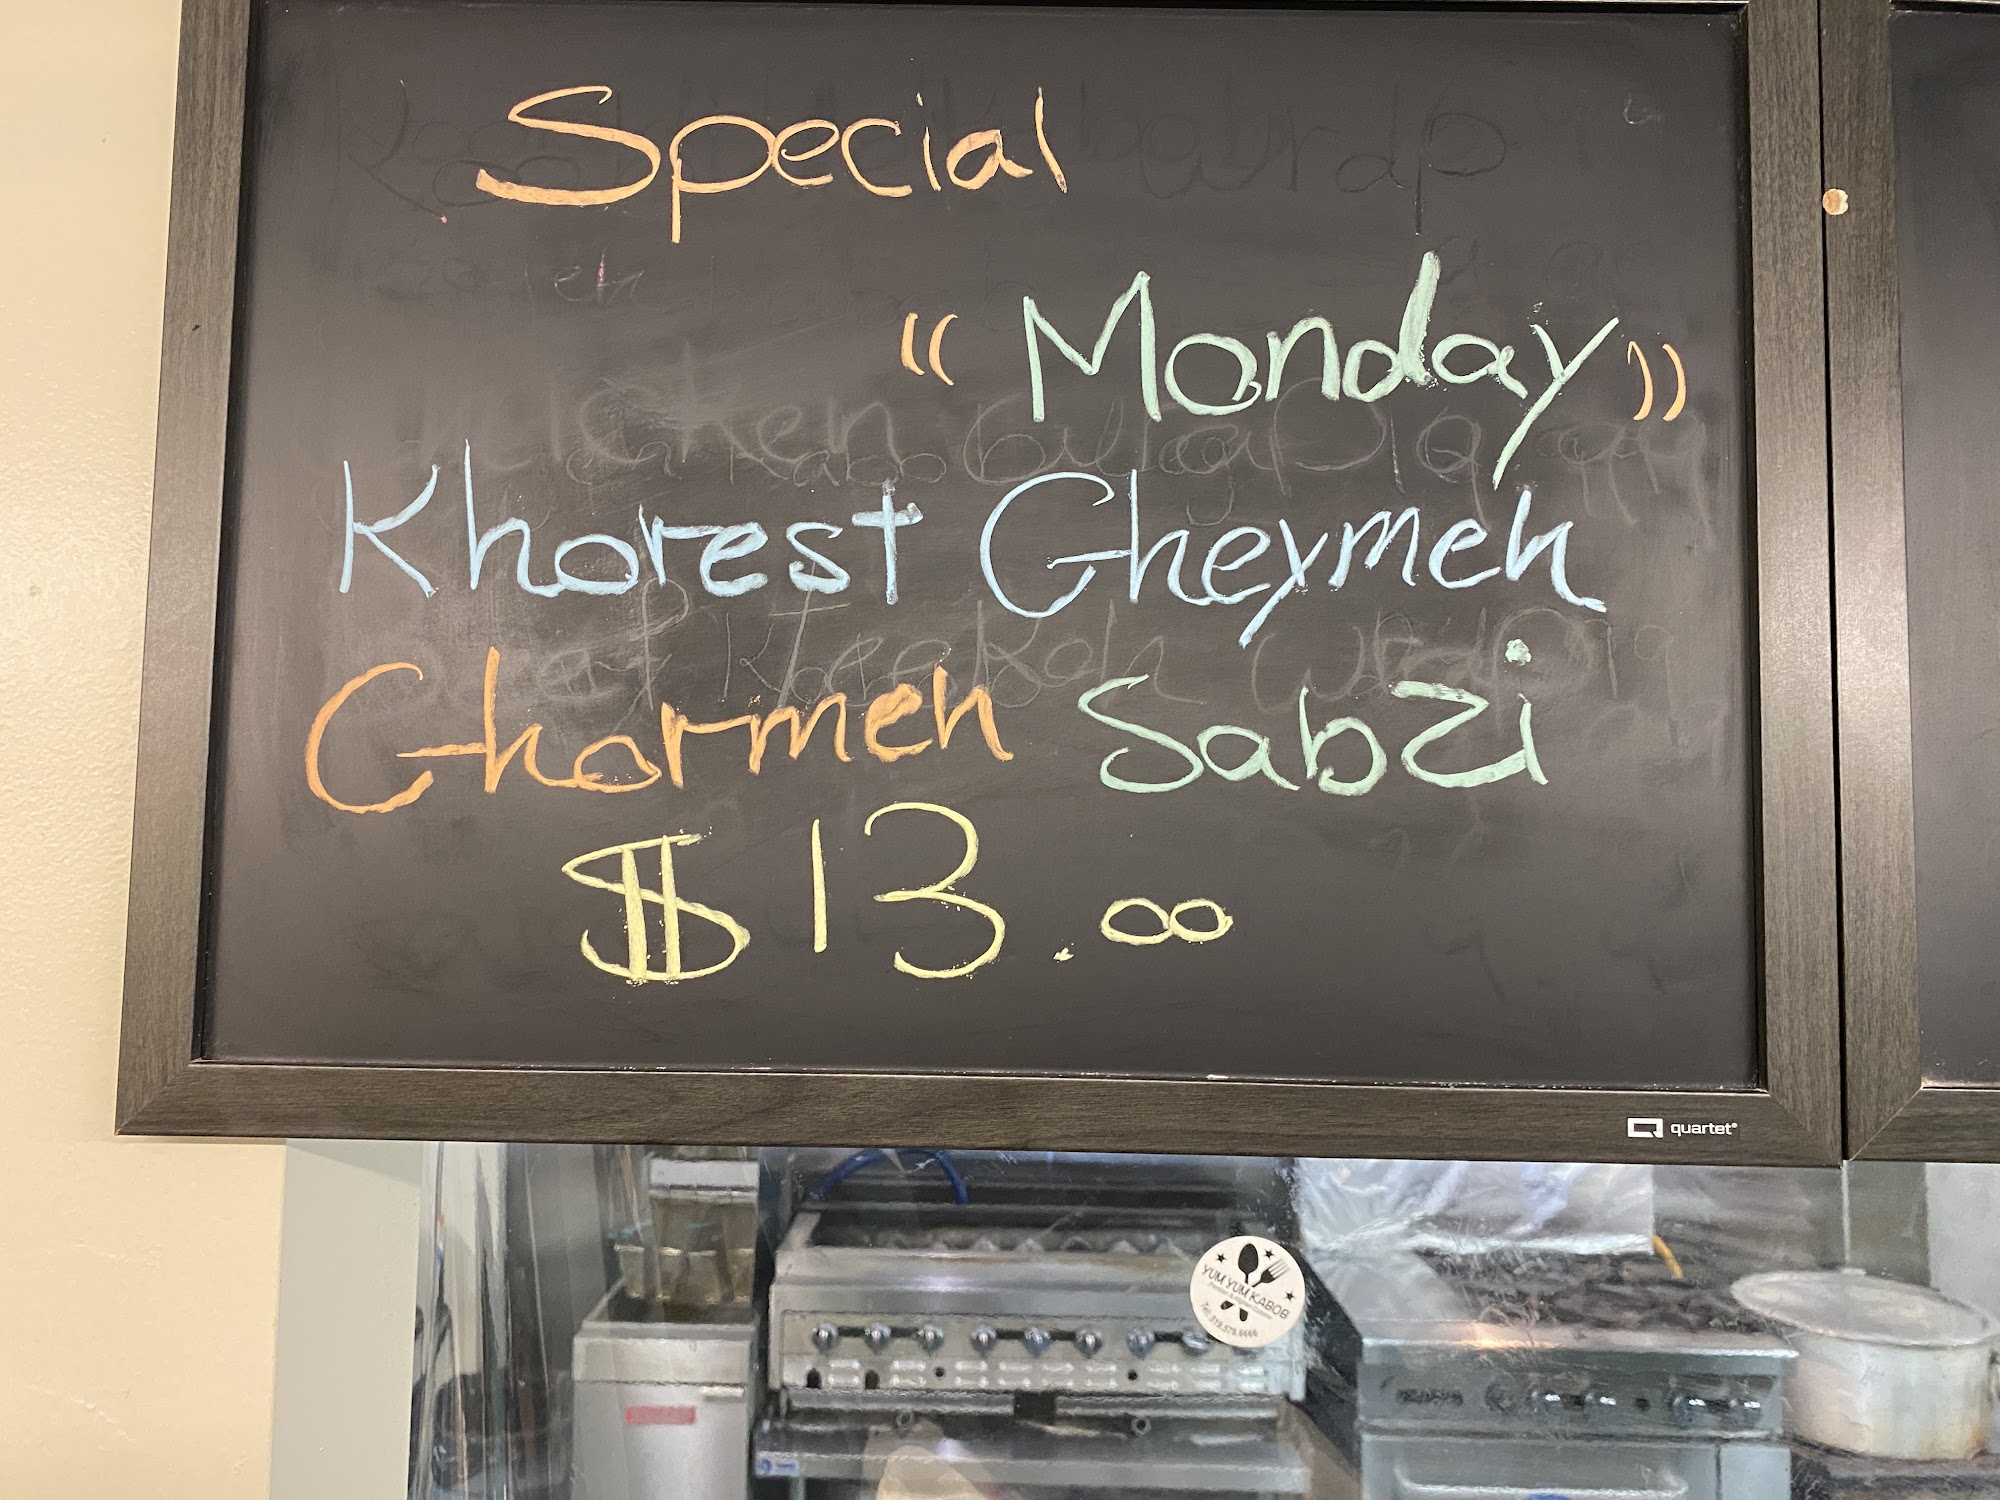 Special
"Monday"
Khorest Gheymeh
Ghormeh Sabzi
$13.00
quartet
YUM YUM KABOB
Tel: 519.578.6666